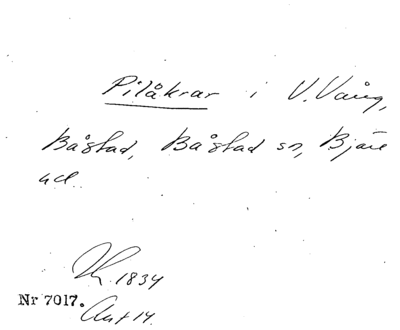 Pilåkrar i V. Vång,
Båstad, Båstad sn, Bjäre
hd.
1834
Nr 7017.
Akt 14.